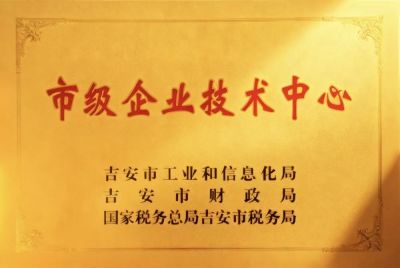 市级企业技术中心
吉安市工业和信息化局
吉安市财政局
国家税务总局吉安市税务局